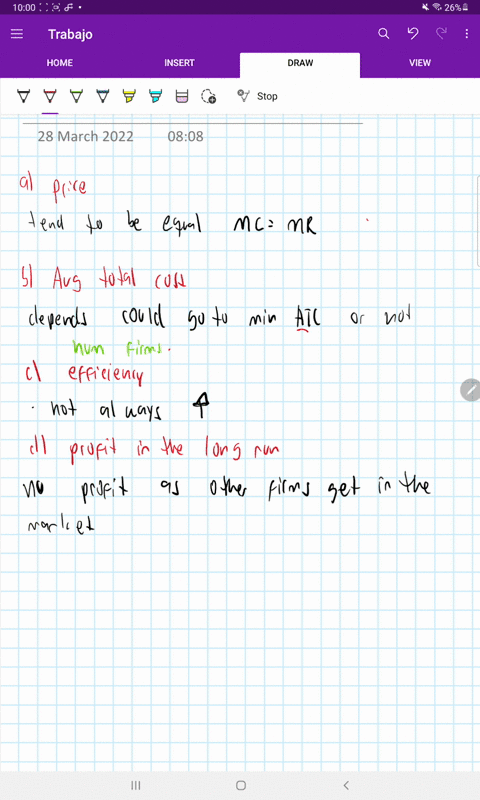 10:00 26%
Trabajo
HOME INSERT DRAW VIEW
Stop
28 March 2022 08:08
a) price
tend to be equal MC = MR
b) Avg total cost
depends could go to min ATC or not
num firms.
c) efficiency
. not always ↑
d) profit in the long run
no profit as other firms get in the
market